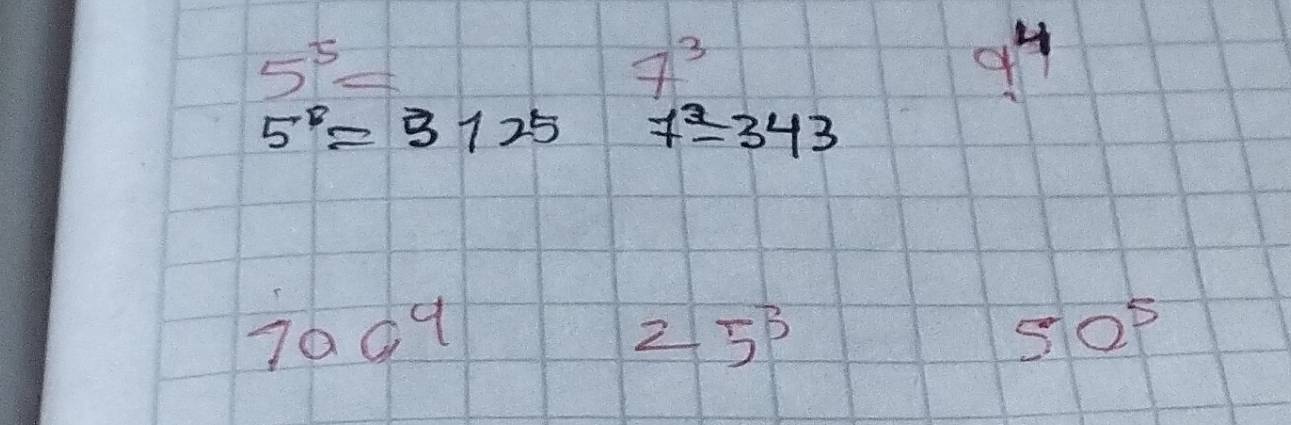 5⁵= 7³ 9⁴
5⁵= 3125 7³=343
100⁹ 25³ 50⁵